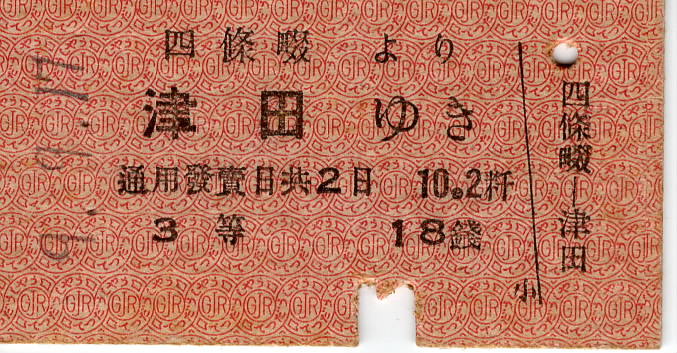 四條畷 より
津田 ゆき
通用發賣日共2日 10.2粁
3 等 18錢
小
四條畷―津田
9.9.17